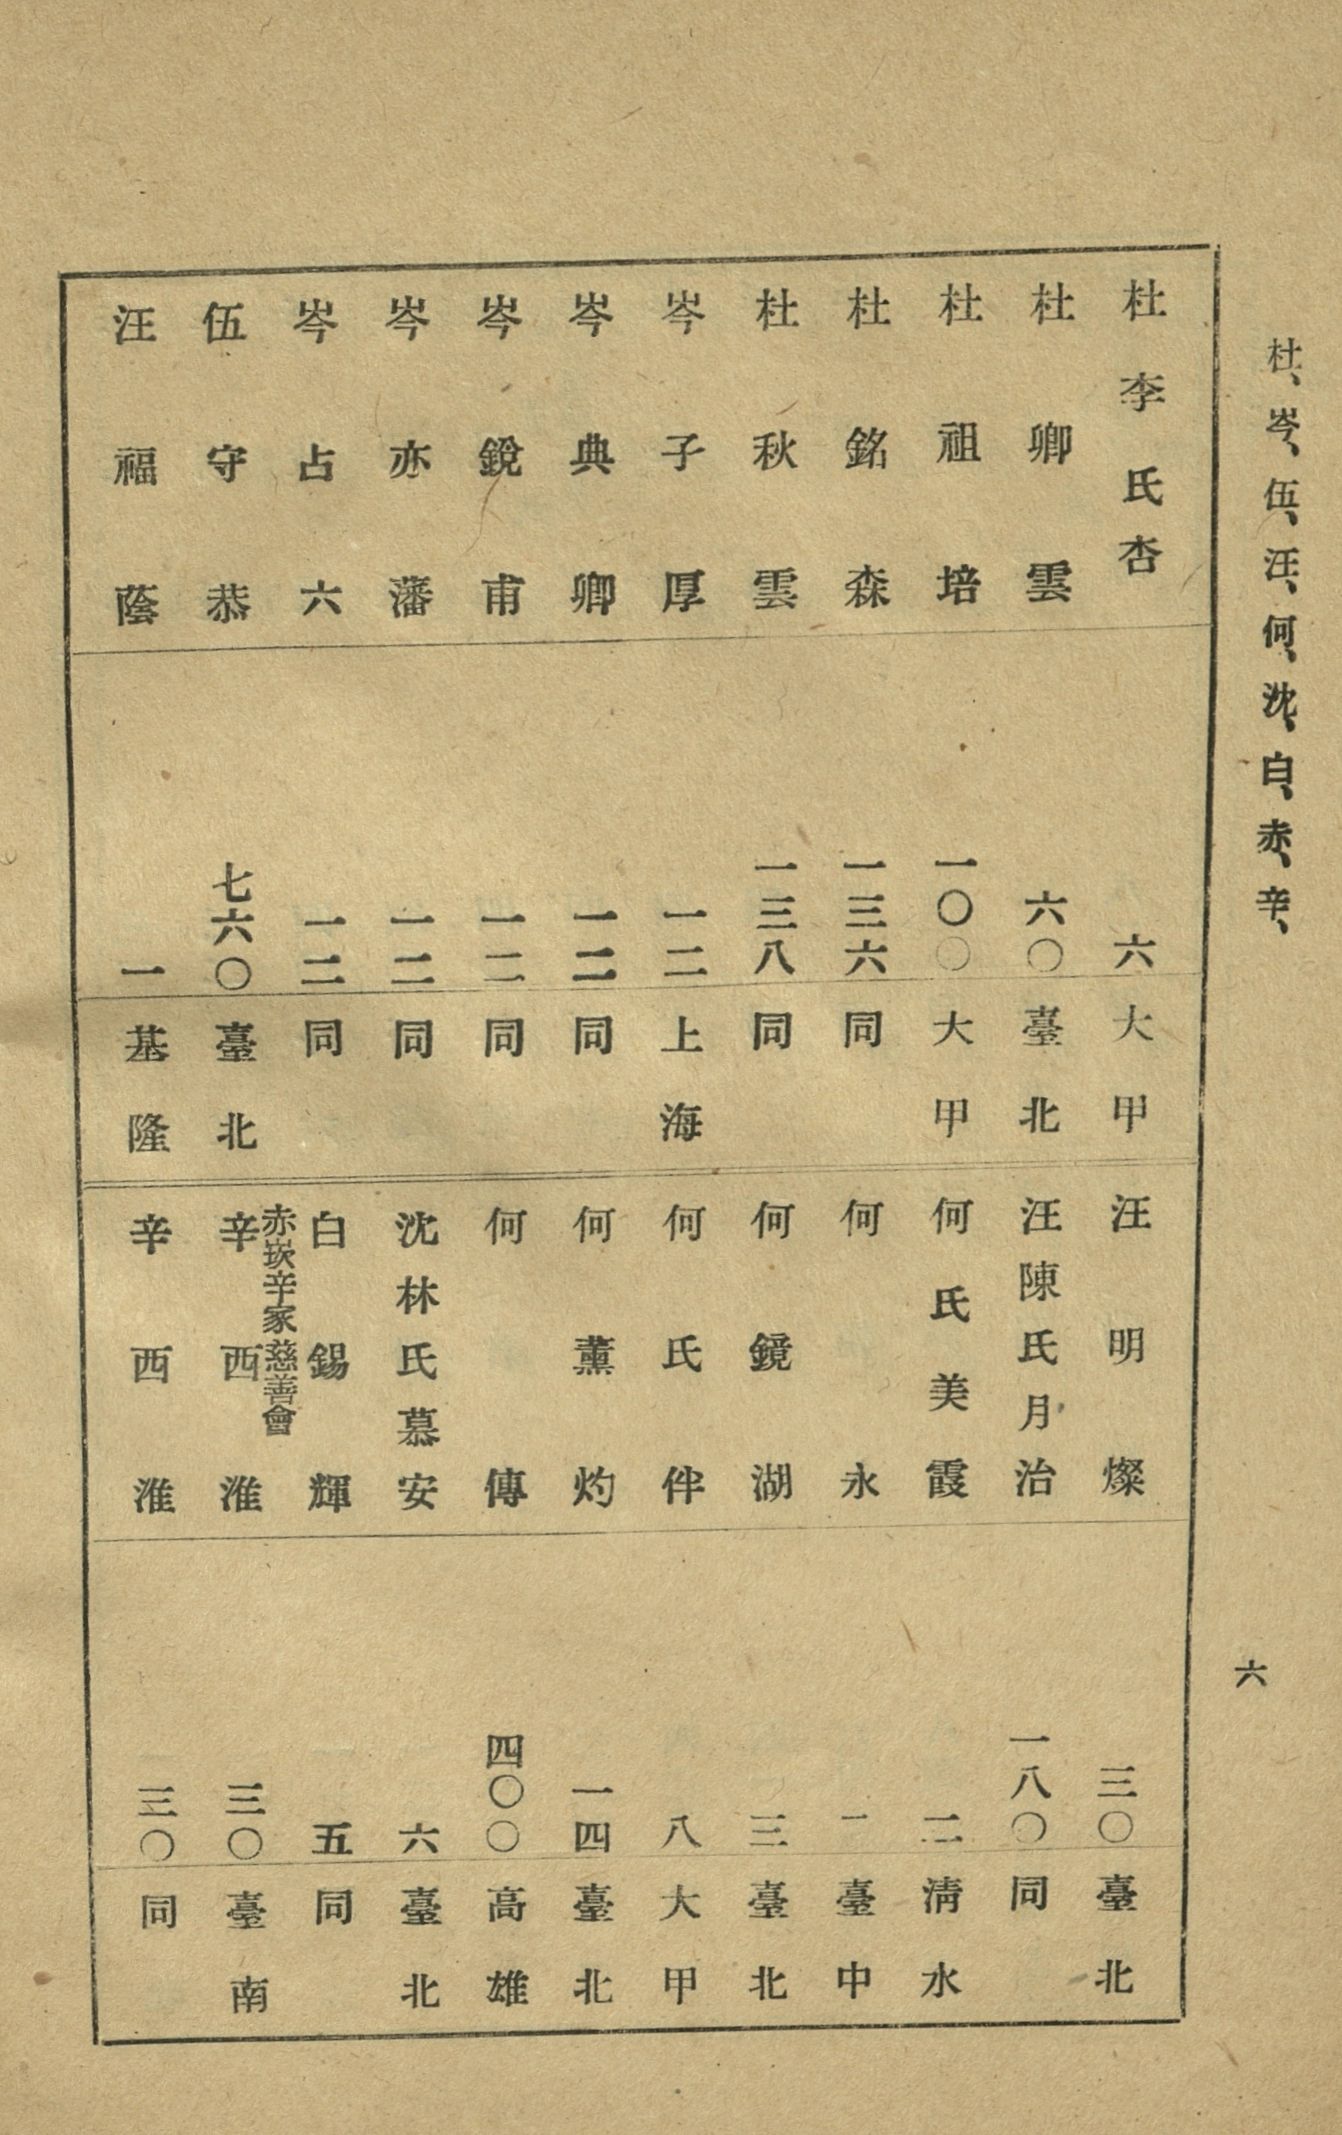 杜、岑、伍、汪、何、沈、白、赤、辛、
六
杜李氏杏 六 大甲
杜卿雲 六〇 臺北
杜祖培 一〇〇 大甲
杜銘森 一三六 同
杜秋雲 一三八 同
岑子厚 一二 上海
岑典卿 一二 同
岑鋭甫 一二 同
岑亦藩 一二 同
岑占六 一二 同
伍守恭 七六〇 臺北
汪福蔭 一 基隆
汪明燦 三〇 臺北
汪陳氏月治 一八〇 同
何氏美霞 二 淸水
何永 二 臺中
何鏡湖 三 臺北
何氏伴 八 大甲
何薰灼 一四 臺北
何傳 四〇〇 高雄
沈林氏慕安 六 臺北
白錫輝 五 同
赤崁辛家慈善會
辛西淮 三〇 臺南
辛西淮 三〇 同